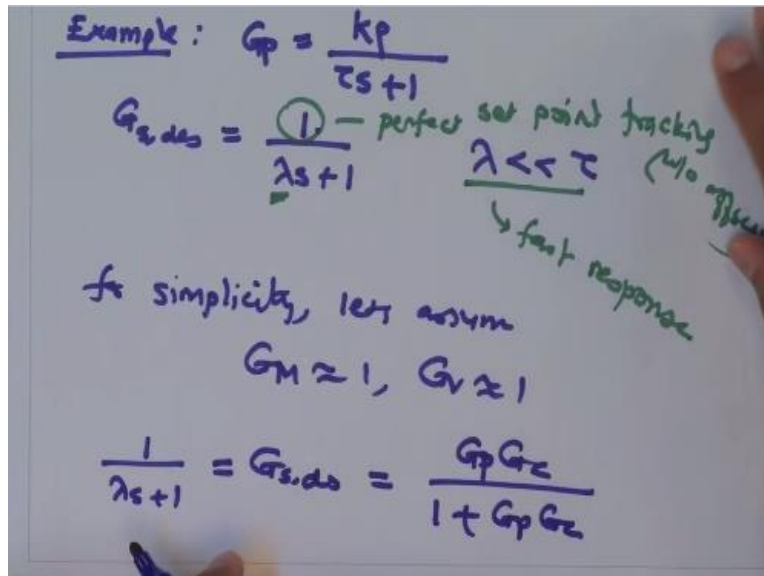 Example : Gp = kp / τs + 1
Gs.des = 1 / λs + 1 — perfect set point tracking
λ << τ (w/o
↳ fast response
for simplicity, lets assum
GM ≈ 1, Gv ≈ 1
1 / λs + 1 = Gs.des = Gp Gc / 1 + Gp Gc